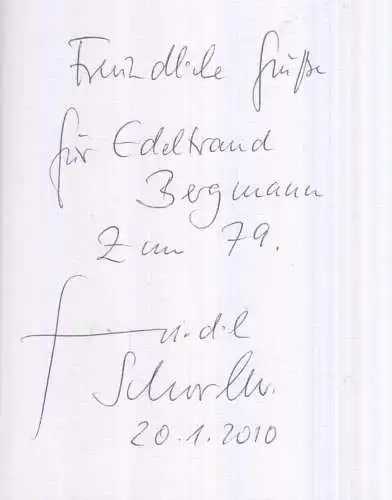 Freundliche Grüße
für Edeltraud
Bergmann
Zum 79.
20.1.2010